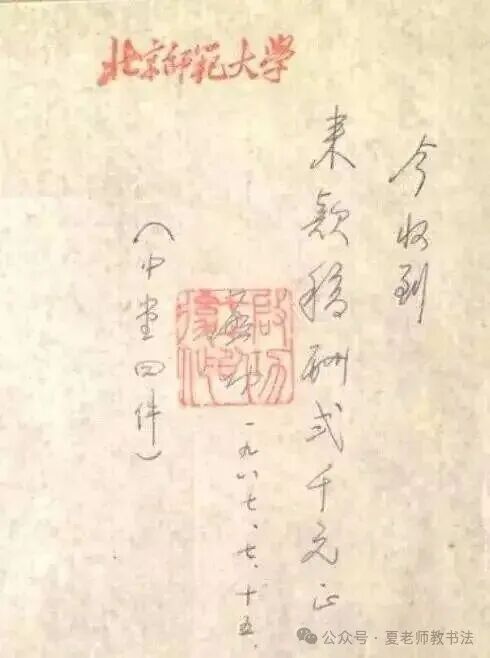 北京师范大学
今收到
来款稿酬弍千元正
启功
一九八七、七、十五.
(中堂四件)
公众号·夏老师教书法